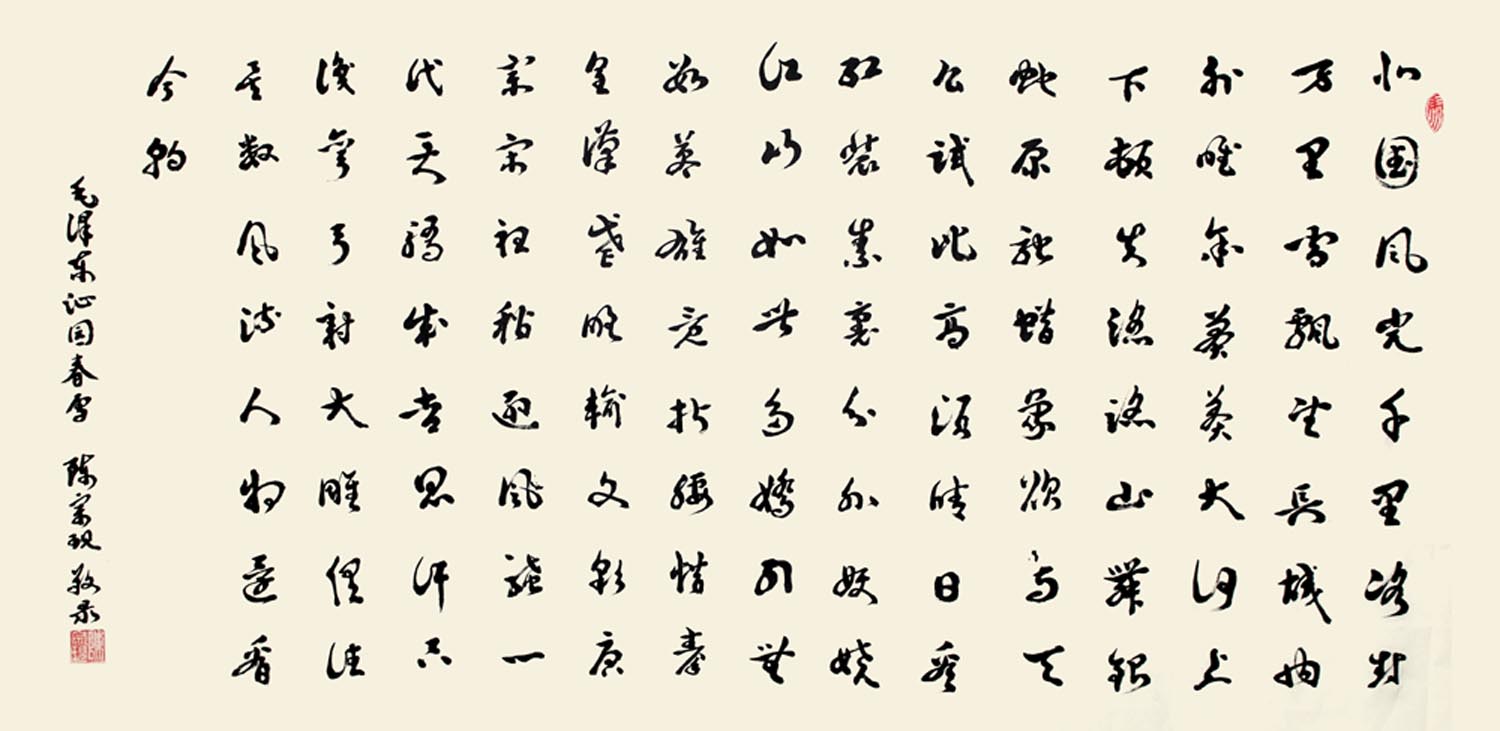 北国风光千里冰封
万里雪飘望長城内
外唯余莽莽大河上
下顿失滔滔山舞银
蛇原驰蜡象欲与天
公试比高须晴日看
红装素裹分外妖娆
江山如此多娇引無
数英雄竞折腰惜秦
皇漢武略输文彩唐
宗宋祖稍逊风骚一
代天骄成吉思汗只
识弯弓射大雕俱往
矣数风流人物还看
今朝
毛泽东沁园春雪 陈宗现敬录